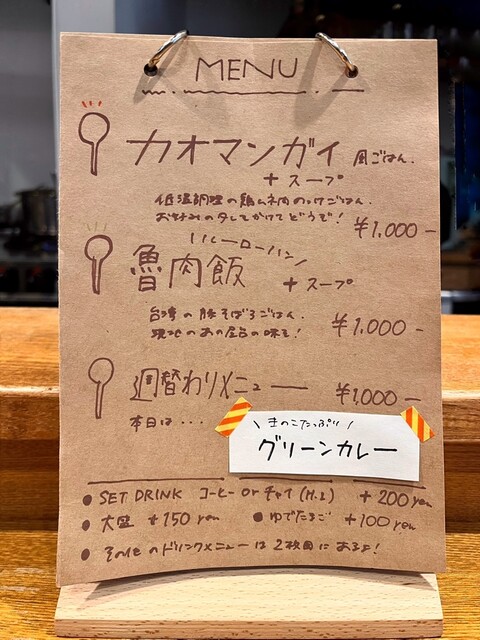 MENU
カオマンガイ 風ごはん.
+ スープ
低温調理の鶏ムネ肉のっけごはん.
お好みのタレかけてどうぞ!
¥1,000-
ルーローハン
魯肉飯 + スープ
台湾の豚そぼろごはん.
現地のあの屋台の味を!
¥1,000-
週替わりメニュー
¥1,000-
本日は・・・
きのこたっぷり
グリーンカレー
● SET DRINK コーヒー or チャイ (H.I) + 200 yen
● 大盛 +150 yen ● ゆでたまご +100 yen
● その他のドリンクメニューは2枚目にあるよ!